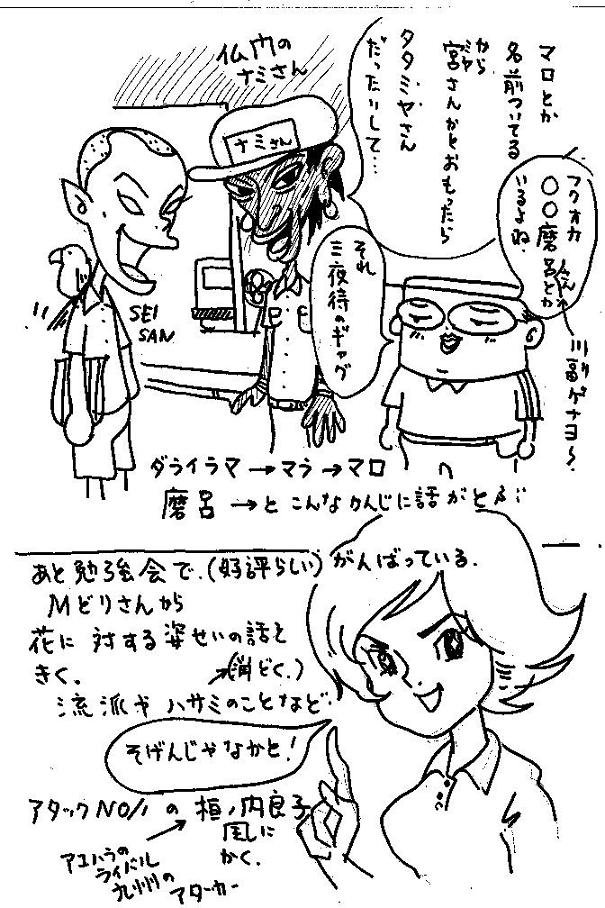 マロとか
名前ついてる
から
宮さんかとおもったら
ミヤ
タタミヤさん
だったりして…
仏ウの
ナミさん
ナミさん
フクオカ
〇〇磨呂とか
いるよね.
それ
三夜待のギャグ
SEI
SAN
ダライラマ→マラ→マロ
磨呂→と こんなかんじに話がとぶ
あと勉強会で.(好評らしい)がんばっている.
Mどりさんから
花に対する姿せいの話を
きく.
(消どく.)
流派やハサミのことなど.
そげんじゃなかと!
アタックNO1の 垣ノ内良子
風に
かく.
アユハラの
ライバル
九州の
アタッカー